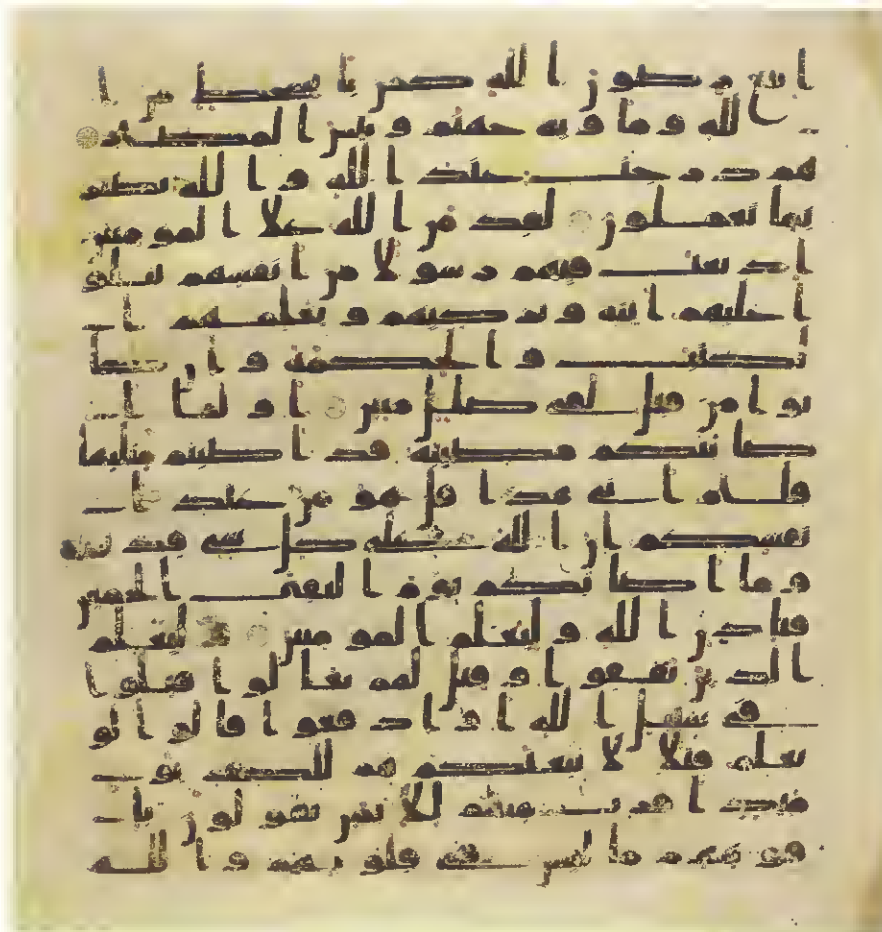 اتبع رضون الله كمن باء بسخط من ا
لله وماويه جهنم وبئس المصير
هم درجت عند الله والله بصير
بما يعملون لقد من الله علا المومنين
اذ بعث فيهم رسولا من انفسهم يتلو
ا عليهم ايته ويزكيهم ويعلمهم ا
لكتب والحكمة وان كا
نوا من قبل لفي ضلل مبين او لما ا
صابتكم مصيبة قد اصبتم مثليها
قلتم انى هذا قل هو من عند ا
نفسكم ان الله على كل شي قدير
وما اصابكم يوم التقى الجمعن
فباذن الله وليعلم المومنين وليعلم
الذين نفقوا وقيل لهم تعالوا قتلوا
في سبيل الله او ادفعوا قالوا لو
نعلم قتلا لاتبعنكم هم للكفر يو
مئذ اقرب منهم للايمن يقولون با
فوههم ما ليس في قلوبهم والله